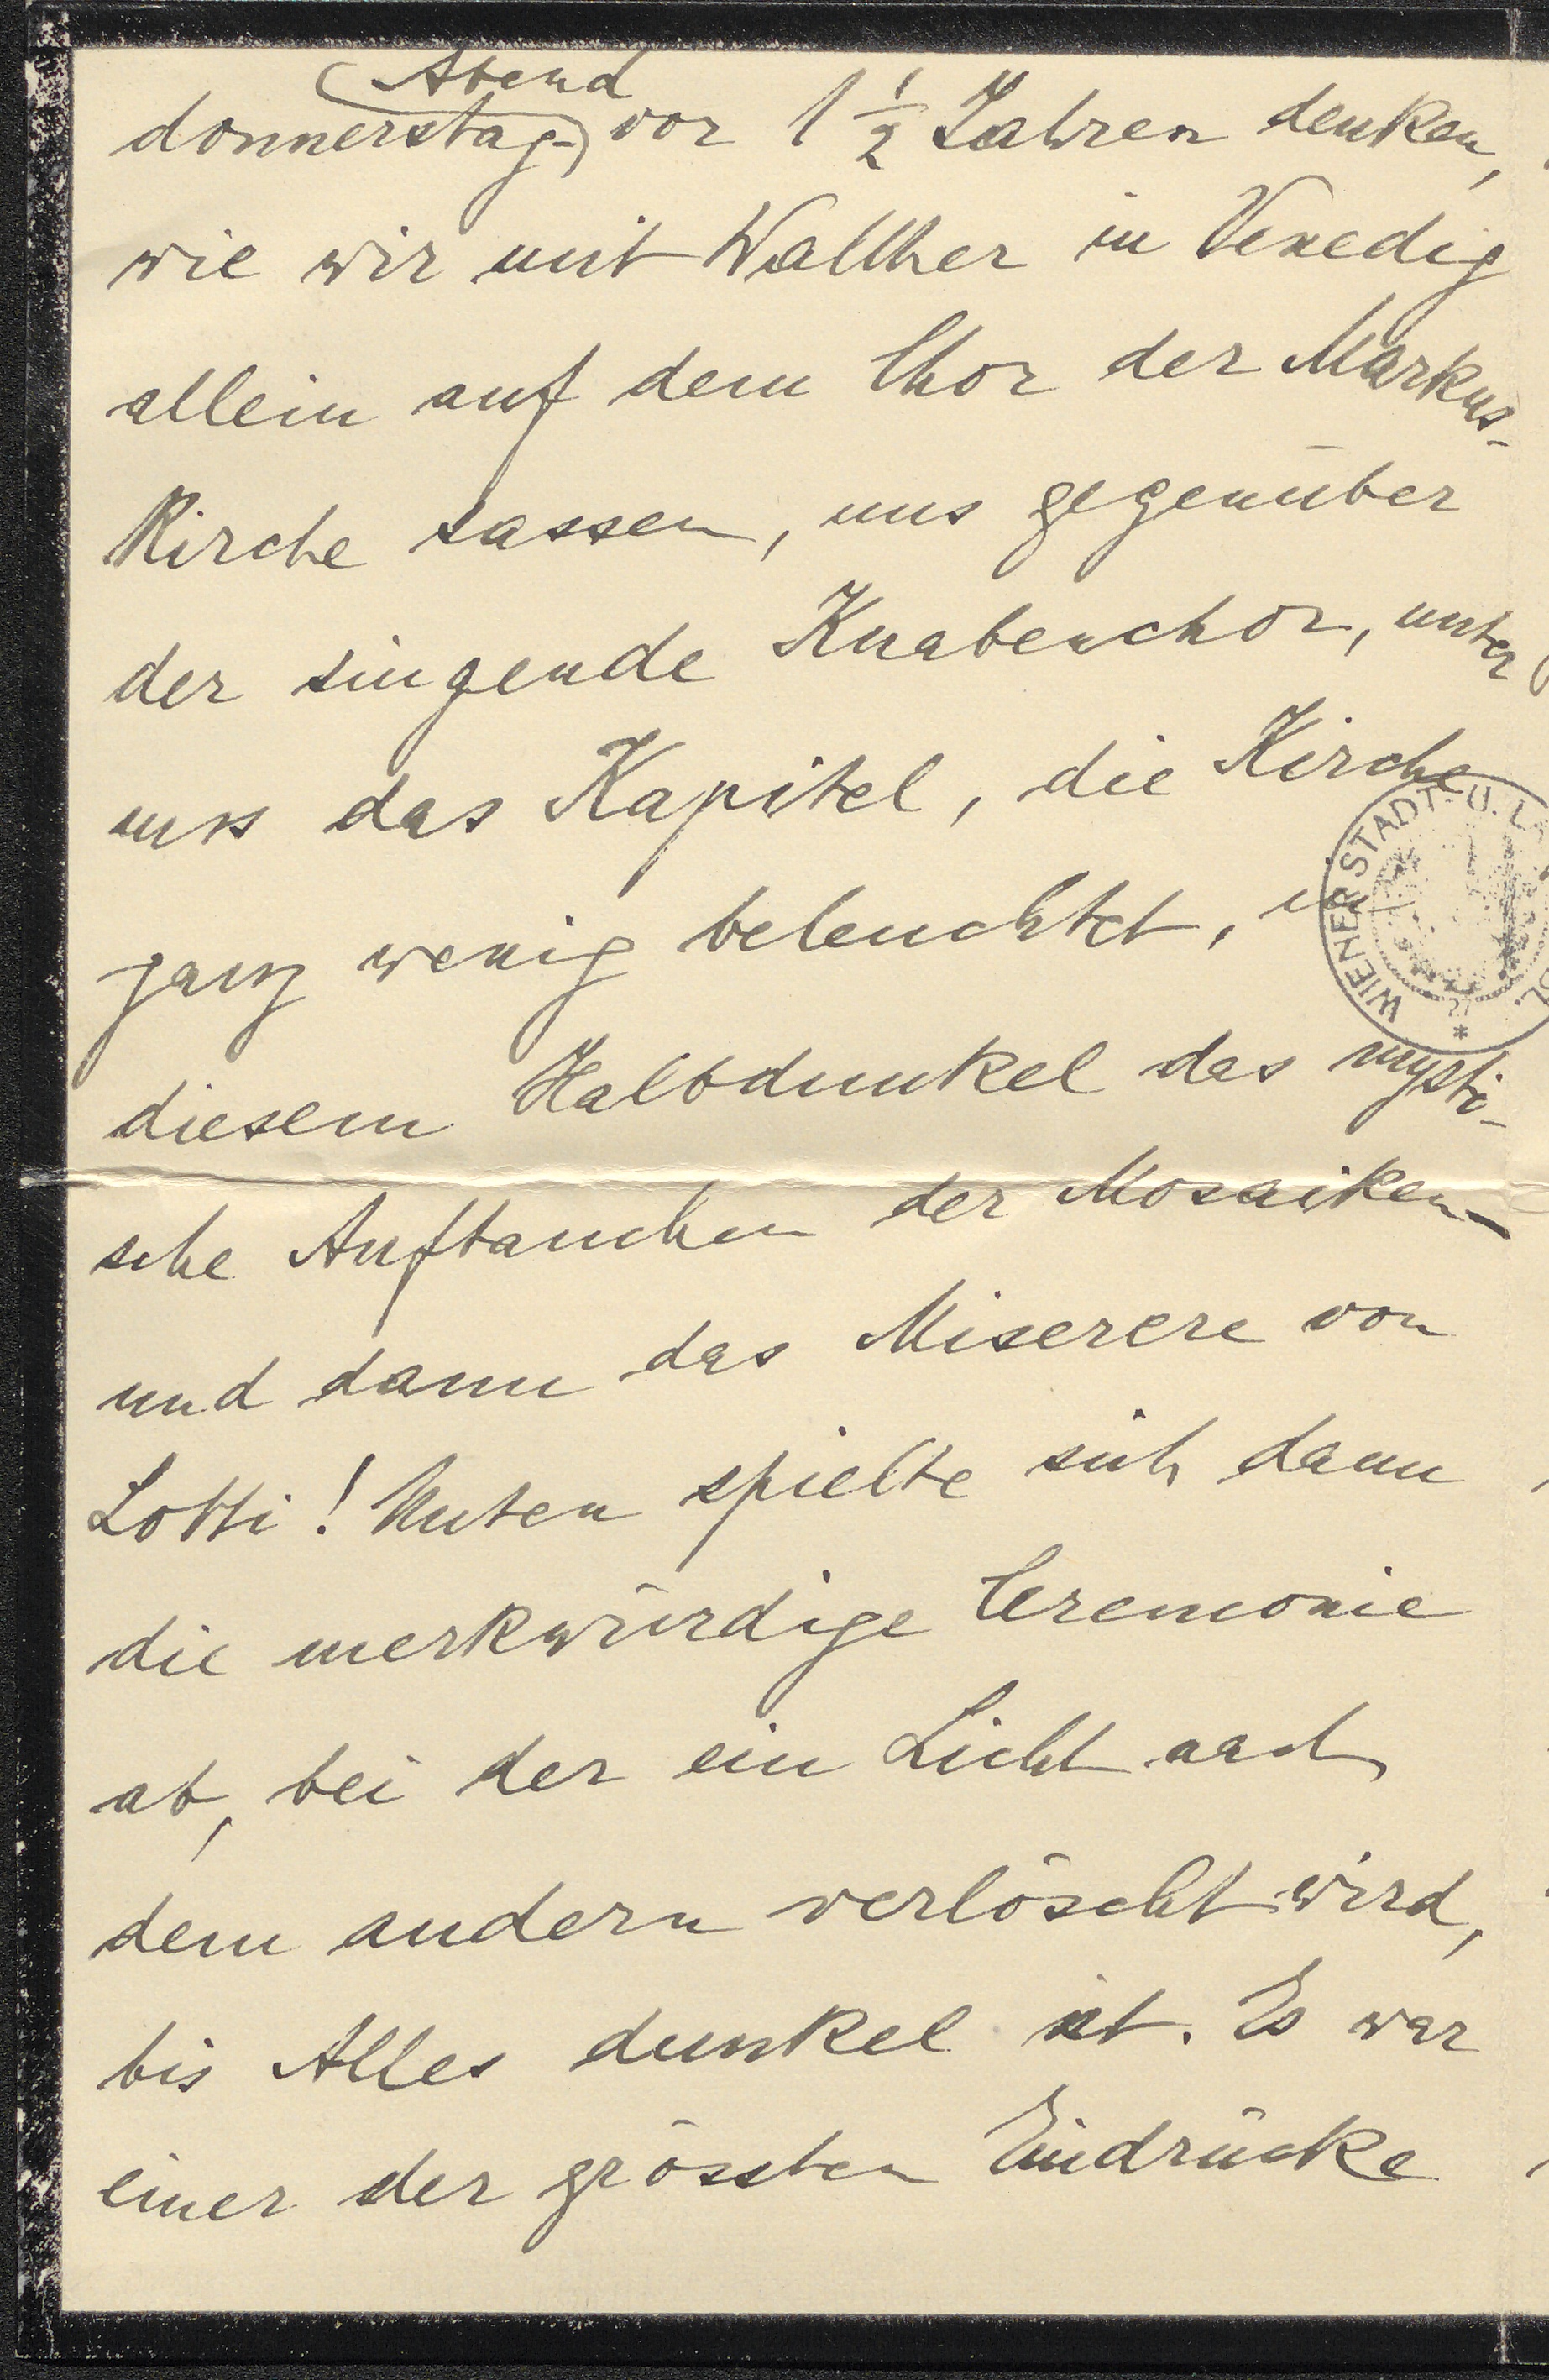 Abend
donnerstag-) vor 1 1/2 Jahren denken,
wie wir mit Walther in Venedig
allein auf dem Chor der Markus-
Kirche sassen, uns gegenüber
der singende Knabenchor, unter
uns das Kapitel, die Kirche
ganz wenig beleuchtet, in
diesem Halbdunkel das mysti-
sche Auftauchen der Mosaiken –
und dann das Miserere von
Lotti! Unten spielte sich dann
die merkwürdige Ceremonie
ab, bei der ein Licht nach
dem andern verlöscht wird,
bis Alles dunkel ist. Es war
einer der grössten Eindrücke
WIENER STADT- U. L